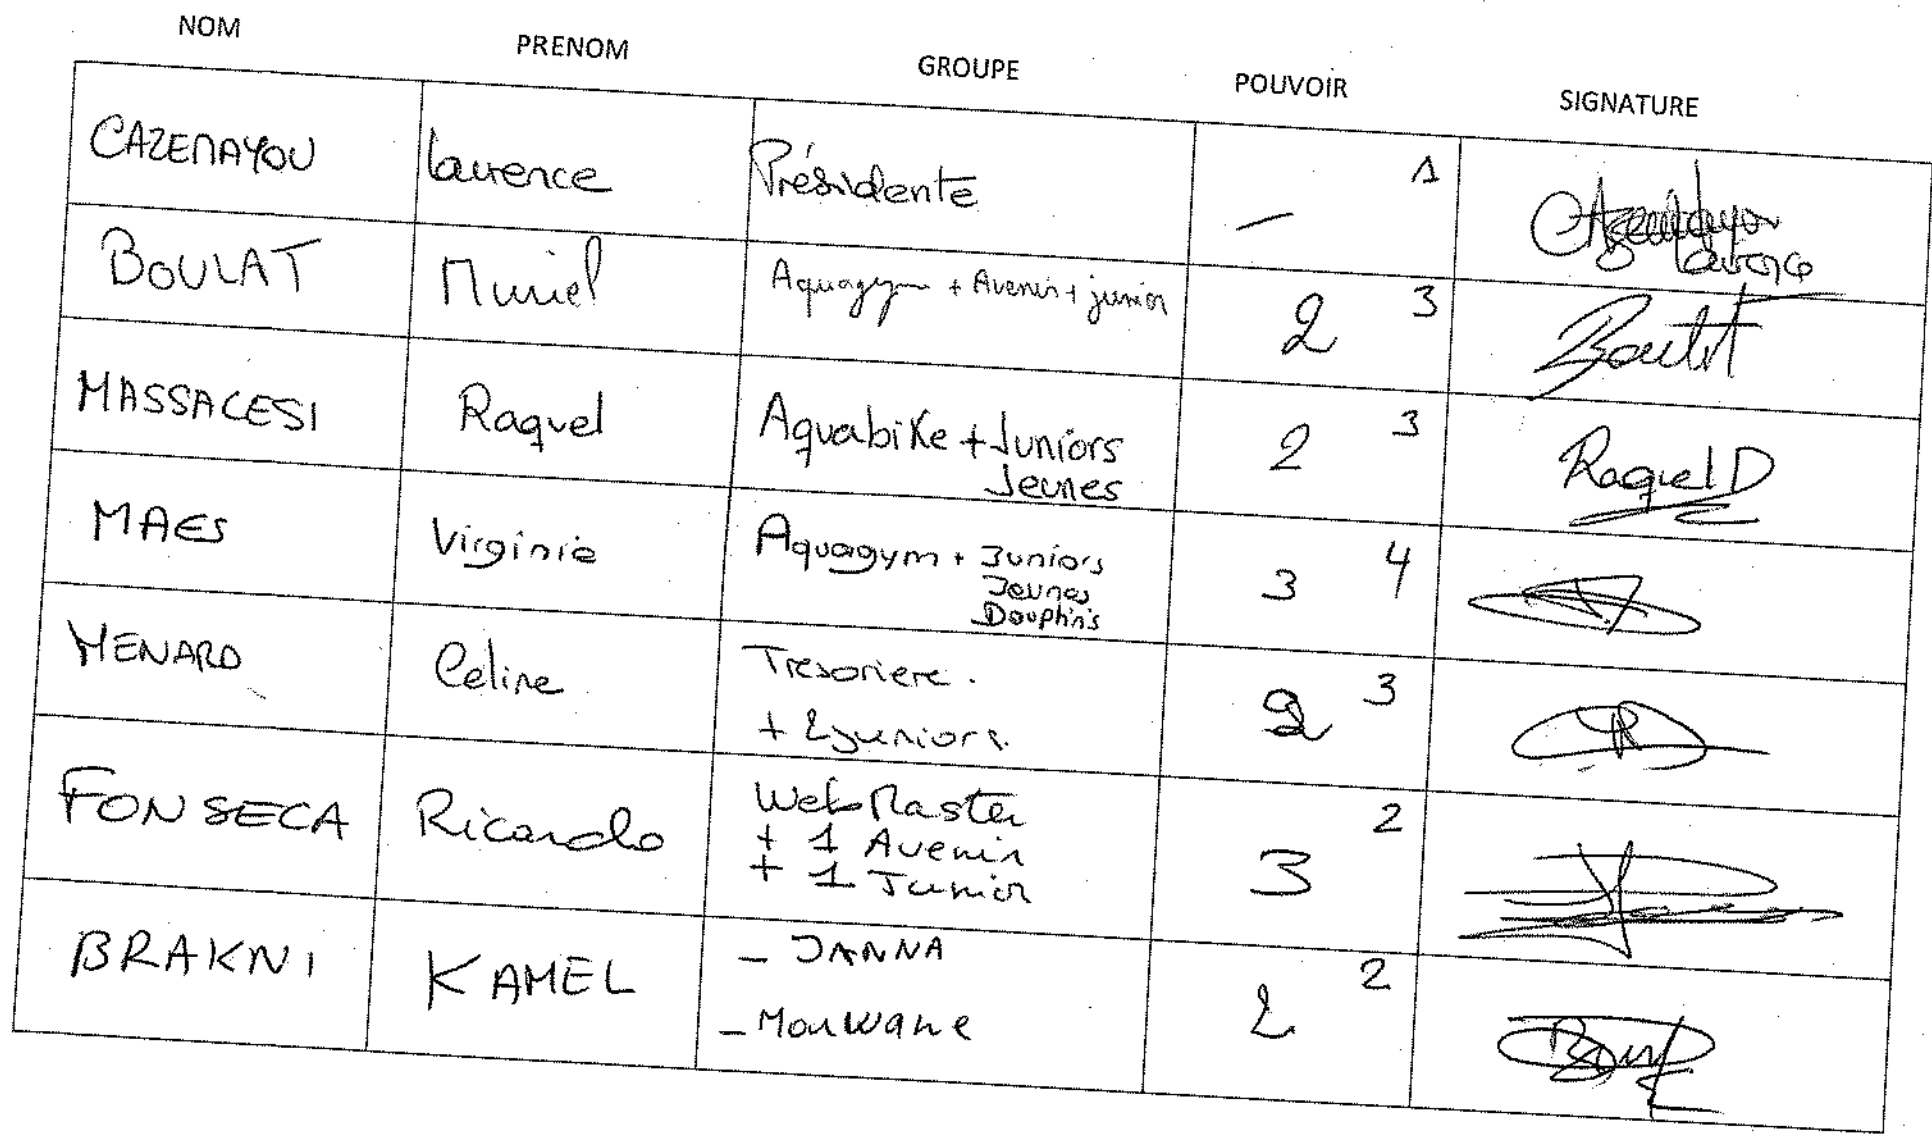 NOM PRENOM GROUPE POUVOIR SIGNATURE
CAZENAYOU Laurence Présidente — 1
BOULAT Muriel Aquagym + Avenir + junior 2 3 Boulat
MASSACESI Raquel Aquabike + Juniors 2 3 Raquel D
Jeunes
MAES Virginie Aquagym + Juniors 3 4
Jeunes
Dauphins
MENARD Celine Tresoriere. 2 3
+ 2 juniors.
FONSECA Ricardo WebMaster 3 2
+ 1 Avenir
+ 1 Junior
BRAKNI KAMEL - JANNA 2 2
- Marwane